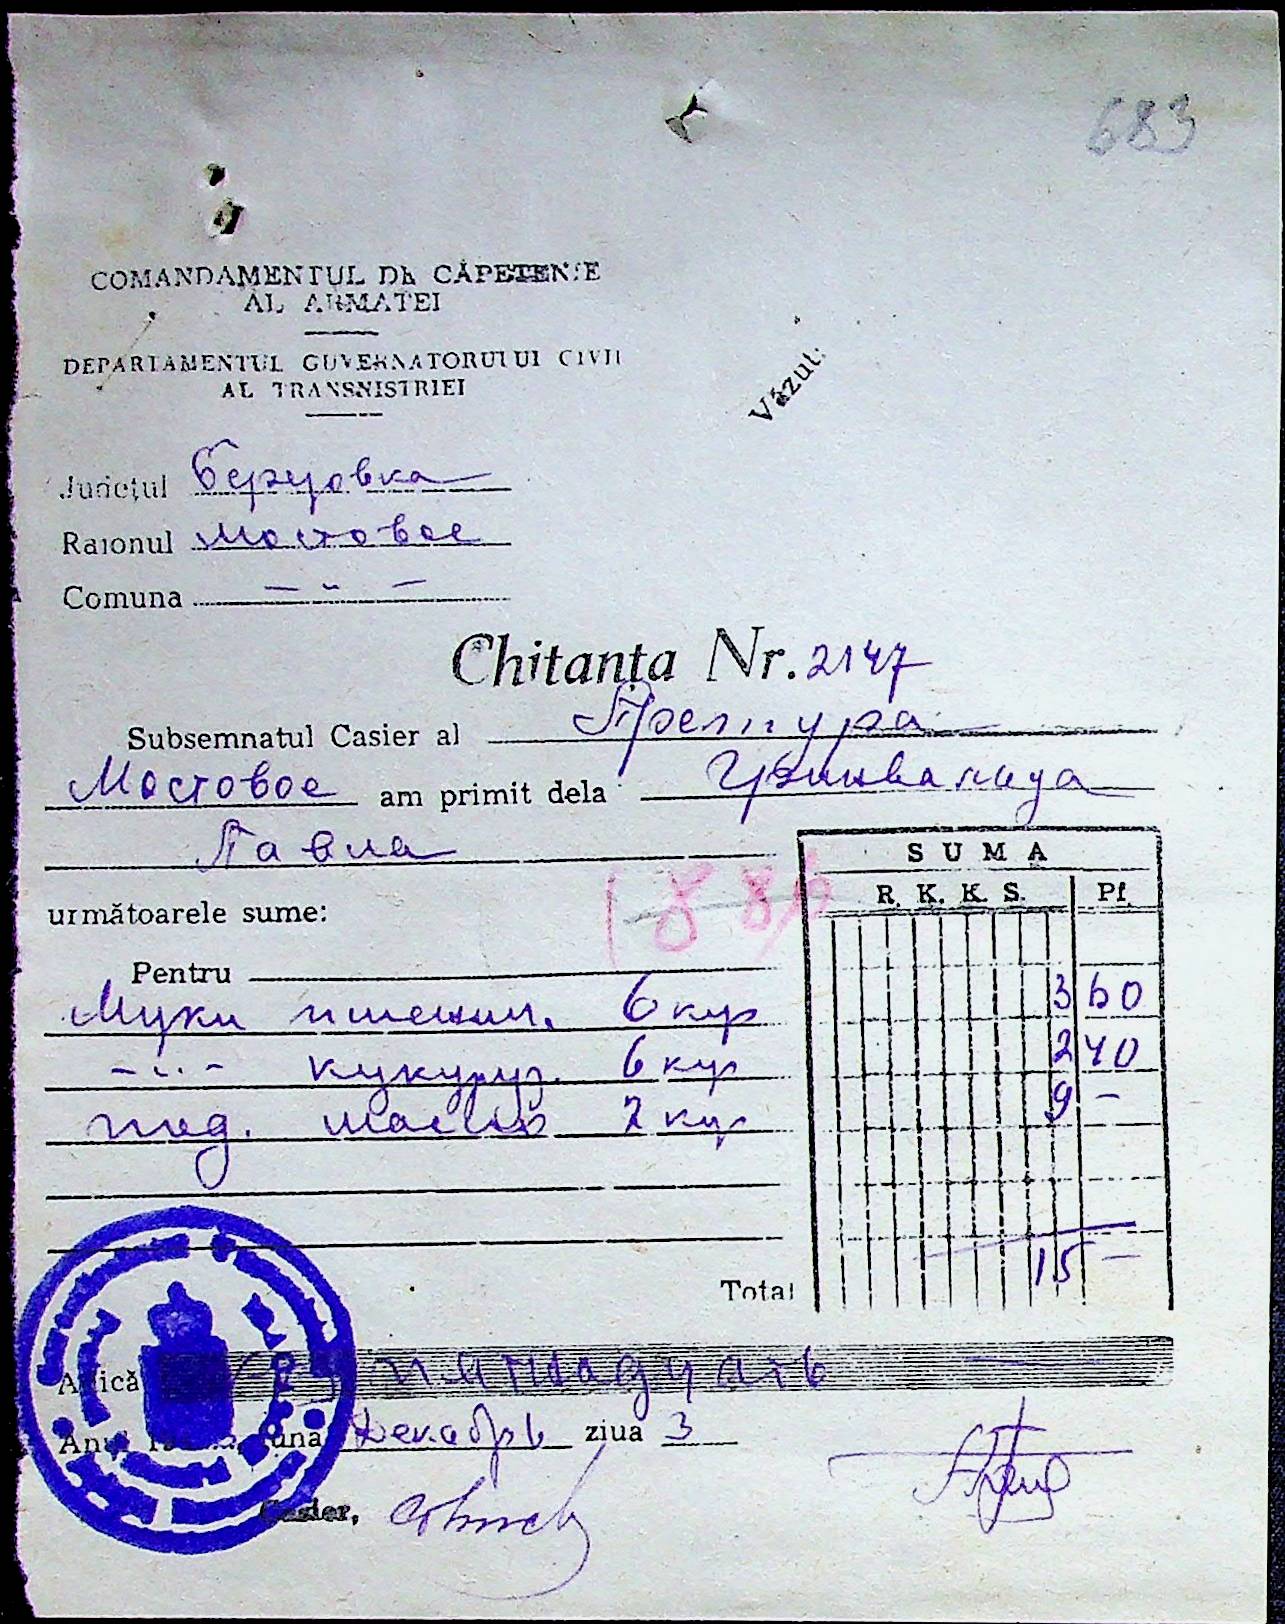 683
COMANDAMENTUL DE CĂPETENIE
AL ARMATEI
DEPARTAMENTUL GUVERNATORULUI CIVIL
AL TRANSNISTRIEI
Văzut:
Județul Березовка
Raionul Мостовое
Comuna — " —
Chitanța Nr. 2147
Subsemnatul Casier al Претура
Мостовое am primit dela
Павла
SUMA
R. K. K. S. Pf.
următoarele sume:
188
Pentru
Муки пшенич. 6 кгр 3 60
— " — кукуруз. 6 кгр 2 40
под. масла 2 кгр 9 —
Total 15 —
Adică пятнадцать
Anul luna Декабрь ziua 3
Casier,